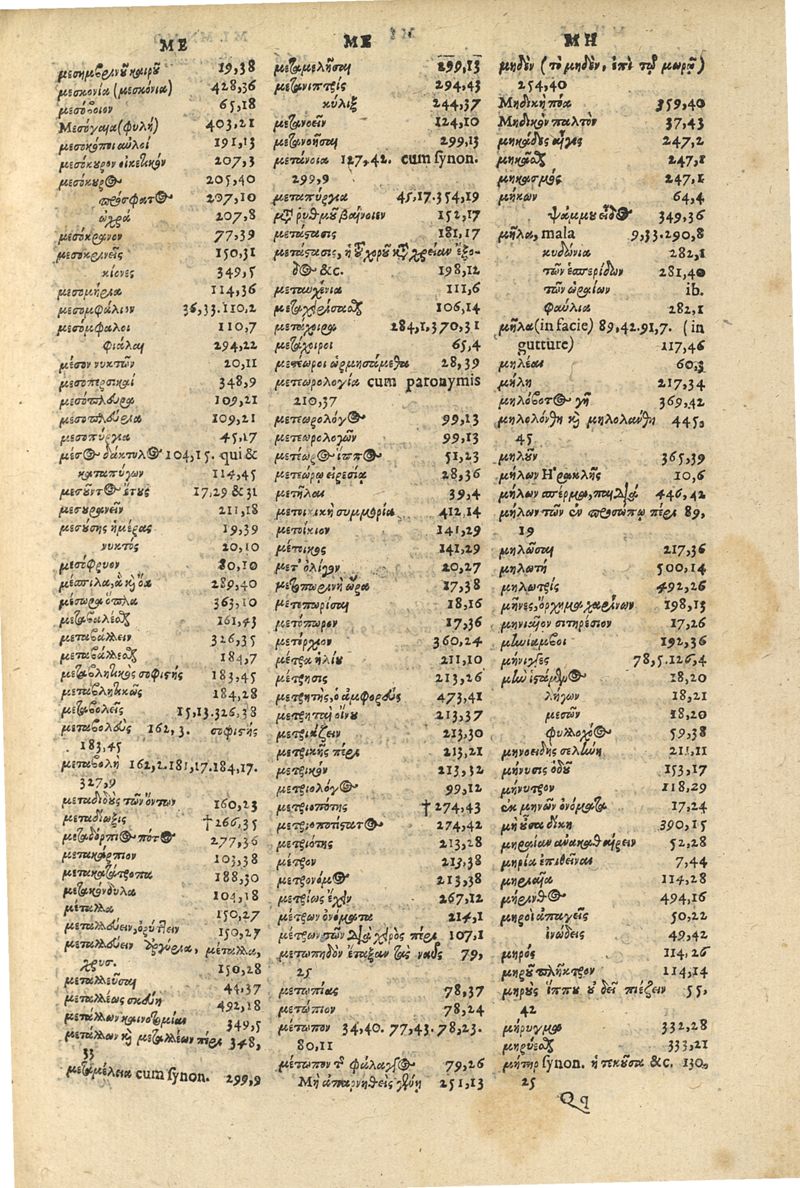 ΜΕ
μεσημβρινοῦ καιροῦ 19,38
μεσκονία (μεσκόνια) 428,36
μεσόβοιον 65,18
Μεσόγαια (φυλή) 403,21
μεσόκοποι αὐλοί 191,13
μεσόκυρον οἰκετικόν 207,3
μεσόκυρος 205,40
πρόσφατος 207,10
ὠχρά 207,8
μεσόκρανον 77,39
μεσοκρινεῖς 150,31
κίονες 349,5
μεσομήρια 114,36
μεσομφάλιον 36,33.110,2
μεσόμφαλοι 110,7
φιάλαι 294,22
μέσον νυκτῶν 20,11
μεσοπερσικαί 348,9
μεσόπλουρα 109,21
μεσοπλεύρια 109,21
μεσοπύργια 45,17
μέσος δάκτυλος 104,15. qui &
καταπύγων 114,45
μεσοῦντος ἔτους 17,29 & 31
μεσουρανεῖν 211,18
μεσούσης ἡμέρας 19,39
νυκτός 20,10
μεσόφρυον 80,10
μέσπιλα, ἃ κὶ ὄα 289,40
μέσωρα ὅπλα 363,10
μεταβαλέσθαι 161,43
μεταβάλλειν 326,35
μεταβάλλεσθαι 184,7
μεταβλητικὸς σοφιστής 183,45
μεταβλητικῶς 184,28
μεταβολεῖς 15,13.326,38
μεταβολεὺς 162,3. σοφιστής
183,45
μεταβολή 162,2.181,17.184,17.
327,9
μεταδιδοὺς τῶν ὄντων 160,23
μεταδίωξις †266,35
μεταδόρπιος πότος 277,36
μετακάρπιον 103,38
μετακαζάτροπα 188,30
μετακόνδυλα 104,18
μέταλλα 150,27
μεταλλεύειν, ὀρύττειν 150,27
μεταλλεύειν ἀργύρια, μέταλλα,
χρυσ. 150,28
μεταλλεῦσαι 44,37
μεταλλέως σκεύη 492,18
μετάλλων καινοτομίας 349,5
μετάλλων κὶ μεταλλέων πέρι 348,
33
μεταμέλεια cum synon. 299,9
ΜΕ
μεταμελῆσαι 299,13
μετανιπτρίς 294,43
κύλιξ 244,37
μετανοεῖν 124,10
μετανοῆσαι 299,13
μετάνοια 127,42. cum synon.
299,9
μεταπύργια 45,17.354,19
μετὰ ῥυθμοῦ βαίνοιεν 152,17
μετάστασις 181,17
μετάστασις, ἡ τοῦ χοροῦ κατὰ χρείαν ἔξο-
δος &c. 198,12
μεταυχένια 111,6
μεταχειρίσασθαι 106,14
μετάχοιρα 284,1.370,31
μετάχοιροι 65,4
μετέωροι ὡρμησάμεθα 28,39
μετεωρολογία cum paronymis
210,37
μετεωρολόγος 99,13
μετεωρολογῶν 99,13
μετέωρος ἵππος 51,23
μετέωρῳ εἰρεσίᾳ 28,36
μετῆλαι 39,4
μετοικικὴ συμμορία 412,14
μετοίκιον 141,29
μέτοικος 141,29
μετ' ὀλίγον 20,27
μετοπωρινὴ ὥρα 17,38
μετοπωρίσαι 18,16
μετόπωρον 17,36
μετόρχιον 360,24
μέτρα ἡλίου 211,10
μέτρησις 213,26
μετρητής, ὁ ἀμφορεύς 473,41
μετρηταὶ οἴνου 213,37
μετριάζειν 213,30
μετρικῆς πέρι 213,21
μετρικόν 213,32
μετριολόγος 99,12
μετριοπότης †274,43
μετριοποτίστατος 274,42
μετριότης 213,28
μέτρον 213,38
μετρονόμοι 213,38
μετρίως ἔχειν 267,12
μέτρων ὀνόματα 214,1
μέτρων τῶν διὰ χειρὸς πέρι 107,1
μετωπηδὸν ἔταξαν τὰς ναῦς 79,
25
μετωπίας 78,37
μετώπιον 78,24
μέτωπον 34,40.77,43.78,23.
80,11
μέτωπον τ φάλαγγος 79,26
Μὴ ἀπαρνηθεὶς χεύῃ 251,13
ΜΗ
μηδὲν (τὸ μηδὲν, ἐπὶ τοῦ μωροῦ)
254,40
Μηδικὴ πόα 359,40
Μηδικὸν παλτόν 37,43
μηκάδες αἶγες 247,2
μηκᾶσθαι 247,1
μηκασμός 247,1
μήκων 64,4
ψάμμου εἶδος 349,36
μῆλα, mala 9,33.290,8
κυδώνια 282,1
τῶν ἑσπερίδων 281,40
τῶν ὡραίων ib.
φαύλια 282,1
μῆλα (in facie) 89,42.91,7. (in
gutture) 117,46
μηλέαι 60,3
μήλη 217,34
μηλόβοτος γῆ 369,42
μηλολόνθη κὶ μηλολάνθη 445.
45
μηλοῦν 365,39
μήλων Ἡρακλῆς 10,6
μήλων σπέρμα, παιδιά 446,42
μήλων τῶν ἐν προσώπῳ πέρι 89,
19
μηλῶσαι 217,36
μηλωτή 500,14
μηλωτρίς 492,26
μῆνες, ὄρχημα χαρίνων 198,13
μηνιαῖον σιτηρέσιον 17,26
μηνίαμβοι 192,36
μήνιγγες 78,5.126,4
μὴν ἱστάμενος 18,20
λήγων 18,21
μεσῶν 18,20
φυλλοχόος 59,38
μηνοειδὴς σελήνη 211,11
μήνυσις ὁδοῦ 153,17
μήνυτρον 118,29
ἐκ μηνῶν ὀνόματα 17,24
μὴ οὖσα δίκη 390,15
μηραίαν ἀνακαθαίρειν 52,28
μηρία ἐπιθεῖναι 7,44
μηριαῖα 114,28
μήρινθος 494,16
μηροὶ ἀπαγεῖς 50,22
ἰνώδεις 49,42
μηρός 114,26
μηροῦ πλῆκτρον 114,14
μηροὺς ἵππου οὐ δεῖ πιέζειν 55,
42
μήρυγμα 332,28
μηρύεσθαι 333,21
μήτηρ synon. ἡ τεκοῦσα &c. 130,
25
Qq